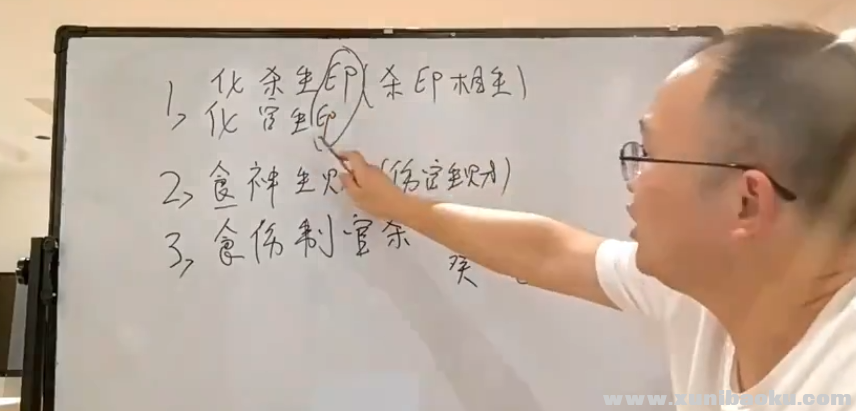 1、化杀生印(杀印相生)
化官生印
2、食神生财(伤官生财)
3、食伤制官杀
癸
www.xunibaoku.com